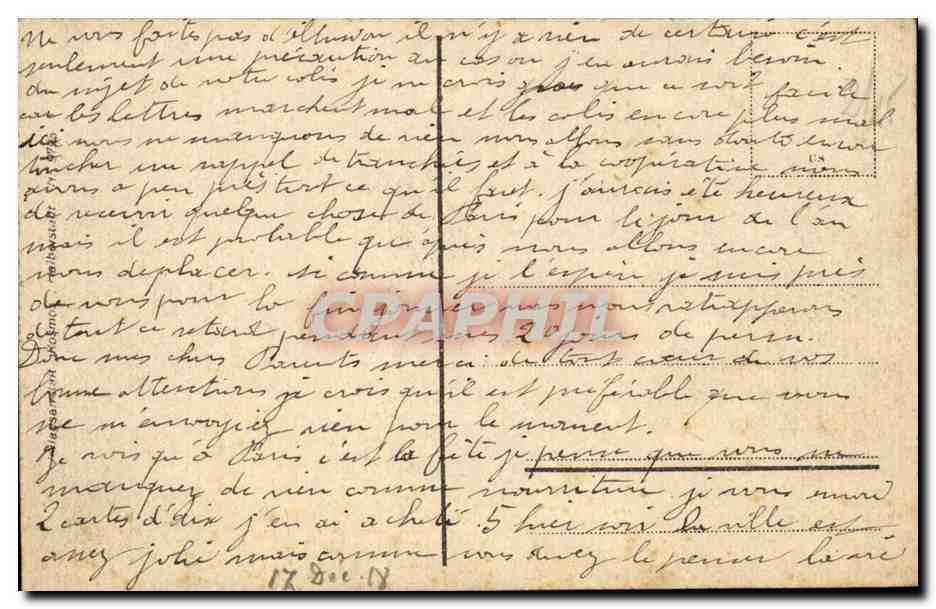 Ne vous faites pas d'illusion il n'y a rien de certain c'est
seulement une précaution au cas où j'en aurais besoin.
du sujet de votre colis je ne crois pas que ce soit facile
car les lettres marchent mal et les colis encore plus mal
ici nous ne manquons de rien nous allons sans doute encore
toucher un rappel de tranchées et à la coopérative nous
avons a peu près tout ce qu'il faut. j'aurais été heureux
de recevoir quelque chose de Paris pour le jour de l'an
mais il est probable que nous allons encore
nous deplacer. si comme je l'espère je suis près
de vous pour la fin janvier nous rattraperons
tout ce retard pendant mes 20 jours de perm.
Donc mes chers Parents merci de tout cœur de vos
bonne attentions je crois qu'il est préférable que vous
ne m'envoyiez rien pour le moment.
Je vois qu'à Paris c'est la fête je pense que vous ne
manquez de rien comme nourriture je vous envoie
2 cartes d'Aix j'en ai acheté 5 hier soir la ville est
assez jolie mais comme vous devez le penser
17 Dec. 18
CPAPHIL